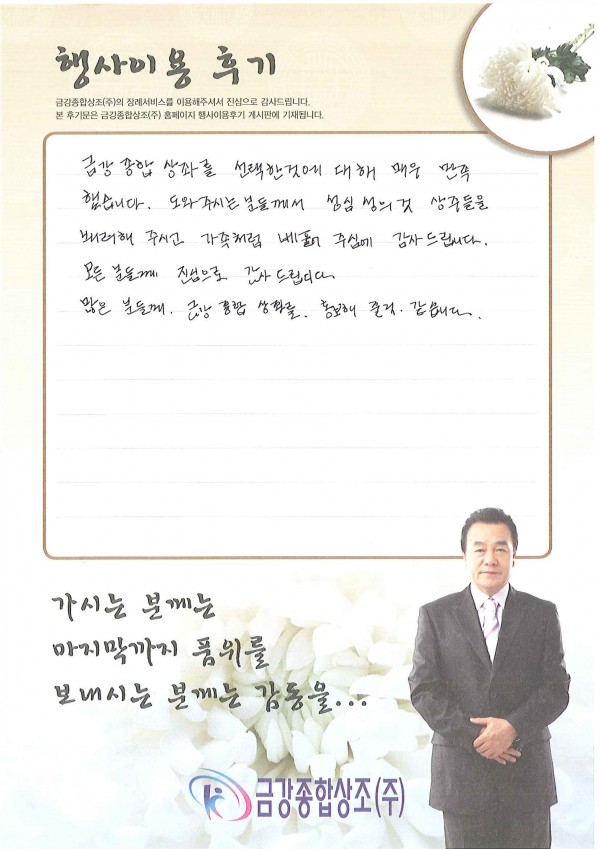 행사이용 후기
금강종합상조(주)의 장례서비스를 이용해주셔서 진심으로 감사드립니다.
본 후기문은 금강종합상조(주) 홈페이지 행사이용후기 게시판에 기재됩니다.
금강 종합 상좌를 선택한것에 대해 매우 만족
했습니다. 도와주시는분들께서 성심 성의것 상주들을
배려해 주시고 가족처럼 베풀어 주심에 감사드립니다.
모든 분들께 진심으로 감사드립니다
많은 분들께. 금강 종합 상좌를. 홍보해 줄것. 같습니다.
가시는 분께는
마지막까지 품위를
보내시는 분께는 감동을...
금강종합상조(주)